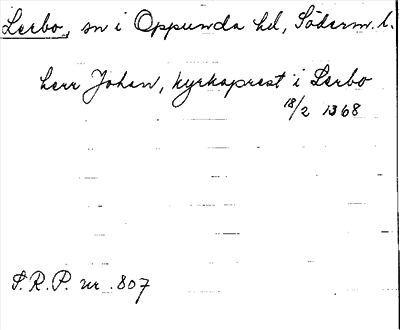 Lerbo, sn i Oppunda hd, Söderm. l.
herr Johan, kyrkoprest i Lerbo
18/2 1368
S.R.P. nr. 807